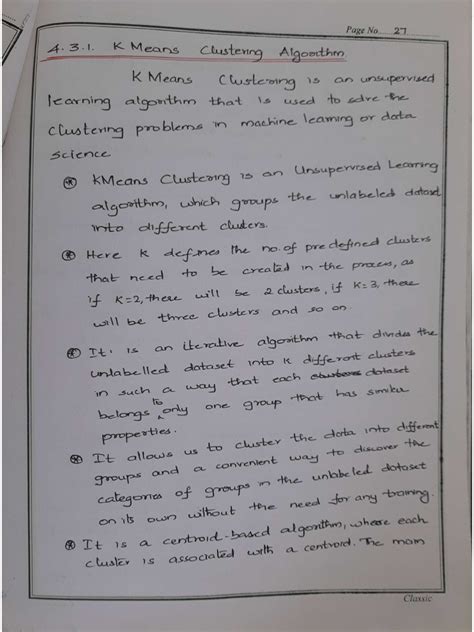 Page No. 27
4.3.1. K Means Clustering Algorithm.
K Means Clustering is an unsupervised
learning algorithm that is used to solve the
clustering problems in machine learning or data
science
KMeans Clustering is an Unsupervised Learning
algorithm, which groups the unlabeled dataset
into different clusters.
Here K defines the no. of predefined clusters
that need to be created in the process, as
if K=2, there will be 2 clusters, if K=3, there
will be three clusters and so on.
It is an iterative algorithm that divides the
unlabelled dataset into K different clusters
in such a way that each dataset
belongs to only one group that has similar
properties.
It allows us to cluster the data into different
groups and a convenient way to discover the
categories of groups in the unlabeled dataset
on its own without the need for any training.
It is a centroid-based algorithm, where each
cluster is associated with a centroid. The main
Classic